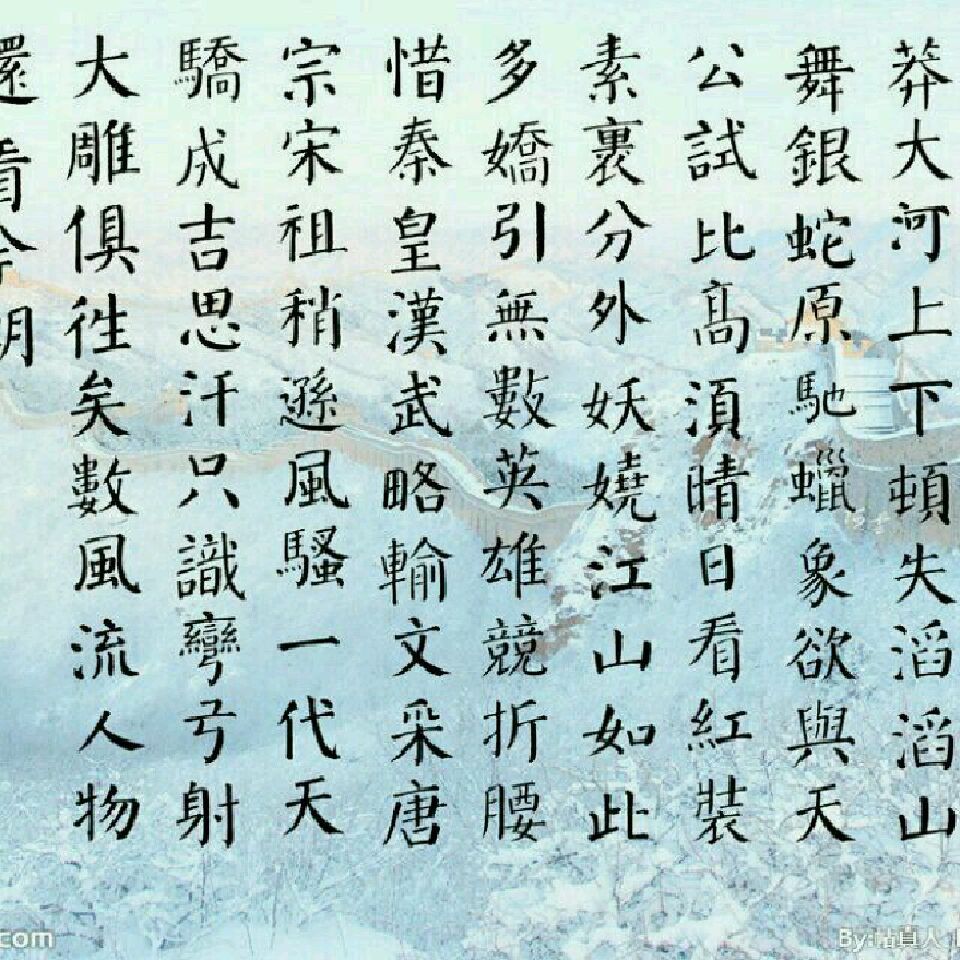 莽大河上下頓失滔滔山
舞銀蛇原馳蠟象欲與天
公試比高須晴日看紅裝
素裹分外妖嬈江山如此
多嬌引無數英雄競折腰
惜秦皇漢武略輸文采唐
宗宋祖稍遜風騷一代天
驕成吉思汗只識彎弓射
大雕俱徃矣數風流人物
還看今朝
.com
By: